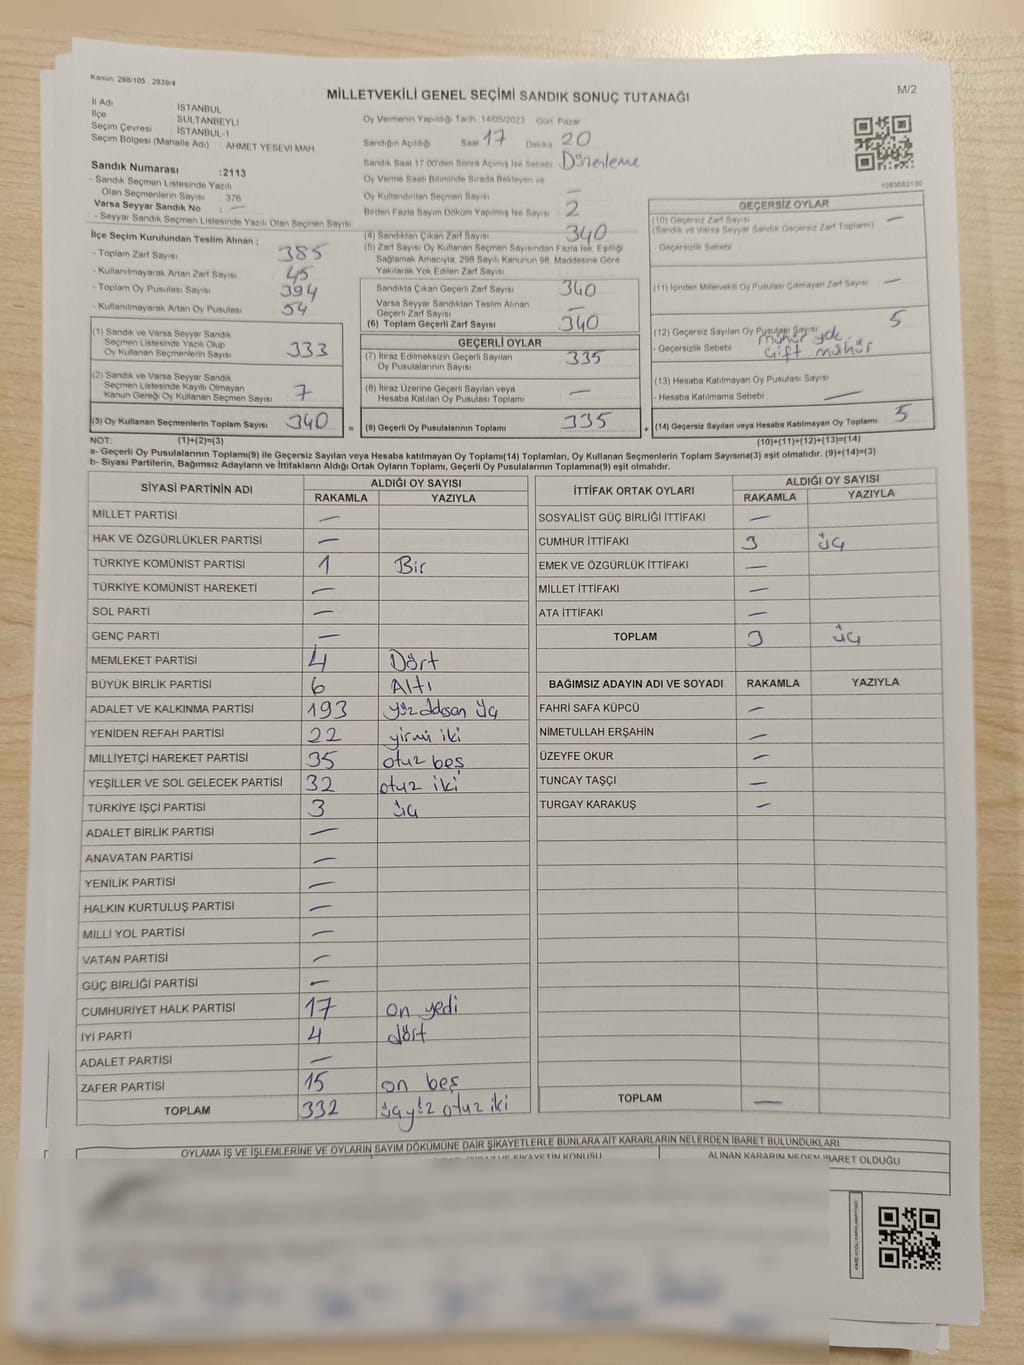 Kanun: 298/105 , 2839/4
MİLLETVEKİLİ GENEL SEÇİMİ SANDIK SONUÇ TUTANAĞI
M/2
İl Adı : İSTANBUL
İlçe : SULTANBEYLİ
Seçim Çevresi : İSTANBUL-1
Seçim Bölgesi (Mahalle Adı) : AHMET YESEVI MAH
Sandık Numarası :2113
- Sandık Seçmen Listesinde Yazılı
Olan Seçmenlerin Sayısı 376
Varsa Seyyar Sandık No : —
- Seyyar Sandık Seçmen Listesinde Yazılı Olan Seçmen Sayısı
İlçe Seçim Kurulundan Teslim Alınan ;
- Toplam Zarf Sayısı 385
- Kullanılmayarak Artan Zarf Sayısı 45
- Toplam Oy Pusulası Sayısı 394
- Kullanılmayarak Artan Oy Pusulası 54
(1) Sandık ve Varsa Seyyar Sandık
Seçmen Listesinde Yazılı Olup
Oy Kullanan Seçmenlerin Sayısı 333
(2) Sandık ve Varsa Seyyar Sandık
Seçmen Listesinde Kayıtlı Olmayan
Kanun Gereği Oy Kullanan Seçmen Sayısı 7
(3) Oy Kullanan Seçmenlerin Toplam Sayısı 340 =
Oy Vermenin Yapıldığı Tarih 14/05/2023 Gün Pazar
Sandığın Açıldığı Saat 17 Dakika 20
Sandık Saat 17.00'den Sonra Açılmış İse Sebebi Düzenleme
Oy Verme Saati Bitiminde Sırada Bekleyen ve
Oy Kullandırılan Seçmen Sayısı —
Birden Fazla Sayım Döküm Yapılmış İse Sayısı 2
(4) Sandıktan Çıkan Zarf Sayısı 340
(5) Zarf Sayısı Oy Kullanan Seçmen Sayısından Fazla İse, Eşitliği
Sağlamak Amacıyla, 298 Sayılı Kanunun 98. Maddesine Göre
Yakılarak Yok Edilen Zarf Sayısı
Sandıkta Çıkan Geçerli Zarf Sayısı 340
Varsa Seyyar Sandıktan Teslim Alınan
Geçerli Zarf Sayısı —
(6) Toplam Geçerli Zarf Sayısı 340
GEÇERLİ OYLAR
(7) İtiraz Edilmeksizin Geçerli Sayılan
Oy Pusulalarının Sayısı 335
(8) İtiraz Üzerine Geçerli Sayılan veya
Hesaba Katılan Oy Pusulası Toplamı —
(9) Geçerli Oy Pusulalarının Toplamı 335 +
1083682130
GEÇERSİZ OYLAR
(10) Geçersiz Zarf Sayısı —
(Sandık ve Varsa Seyyar Sandık Geçersiz Zarf Toplamı)
- Geçersizlik Sebebi
(11) İçinden Milletvekili Oy Pusulası Çıkmayan Zarf Sayısı —
(12) Geçersiz Sayılan Oy Pusulası Sayısı 5
- Geçersizlik Sebebi : mühür yok.
Çift mühür
(13) Hesaba Katılmayan Oy Pusulası Sayısı
- Hesaba Katılmama Sebebi —
(14) Geçersiz Sayılan veya Hesaba Katılmayan Oy Toplamı 5
NOT: (1)+(2)=(3) (10)+(11)+(12)+(13)=(14)
a- Geçerli Oy Pusulalarının Toplamı(9) ile Geçersiz Sayılan veya Hesaba Katılmayan Oy Toplamı(14) Toplamları, Oy Kullanan Seçmenlerin Toplam Sayısına(3) eşit olmalıdır. (9)+(14)=(3)
b- Siyasi Partilerin, Bağımsız Adayların ve İttifakların Aldığı Ortak Oyların Toplamı, Geçerli Oy Pusulalarının Toplamına(9) eşit olmalıdır.
SİYASİ PARTİNİN ADI ALDIĞI OY SAYISI
RAKAMLA YAZIYLA
MİLLET PARTİSİ —
HAK VE ÖZGÜRLÜKLER PARTİSİ —
TÜRKİYE KOMÜNİST PARTİSİ 1 Bir
TÜRKİYE KOMÜNİST HAREKETİ —
SOL PARTİ —
GENÇ PARTİ —
MEMLEKET PARTİSİ 4 Dört
BÜYÜK BİRLİK PARTİSİ 6 Altı
ADALET VE KALKINMA PARTİSİ 193 yüz ddosen üç
YENİDEN REFAH PARTİSİ 22 yirmi iki
MİLLİYETÇİ HAREKET PARTİSİ 35 otuz beş
YEŞİLLER VE SOL GELECEK PARTİSİ 32 otuz iki
TÜRKİYE İŞÇİ PARTİSİ 3 üç
ADALET BİRLİK PARTİSİ —
ANAVATAN PARTİSİ —
YENİLİK PARTİSİ —
HALKIN KURTULUŞ PARTİSİ —
MİLLİ YOL PARTİSİ —
VATAN PARTİSİ —
GÜÇ BİRLİĞİ PARTİSİ —
CUMHURİYET HALK PARTİSİ 17 on yedi
İYİ PARTİ 4 dört
ADALET PARTİSİ —
ZAFER PARTİSİ 15 on beş
TOPLAM 332 üçyüz otuz iki
İTTİFAK ORTAK OYLARI ALDIĞI OY SAYISI
RAKAMLA YAZIYLA
SOSYALİST GÜÇ BİRLİĞİ İTTİFAKI —
CUMHUR İTTİFAKI 3 üç
EMEK VE ÖZGÜRLÜK İTTİFAKI —
MİLLET İTTİFAKI —
ATA İTTİFAKI —
TOPLAM 3 üç
BAĞIMSIZ ADAYIN ADI VE SOYADI RAKAMLA YAZIYLA
FAHRİ SAFA KÜPCÜ —
NİMETULLAH ERŞAHİN —
ÜZEYFE OKUR —
TUNCAY TAŞÇI —
TURGAY KARAKUŞ —
TOPLAM —
OYLAMA İŞ VE İŞLEMLERİNE VE OYLARIN SAYIM DÖKÜMÜNE DAİR ŞİKAYETLERLE BUNLARA AİT KARARLARIN NELERDEN İBARET BULUNDUKLARI
ALINAN KARARIN NEDEN İBARET OLDUĞU